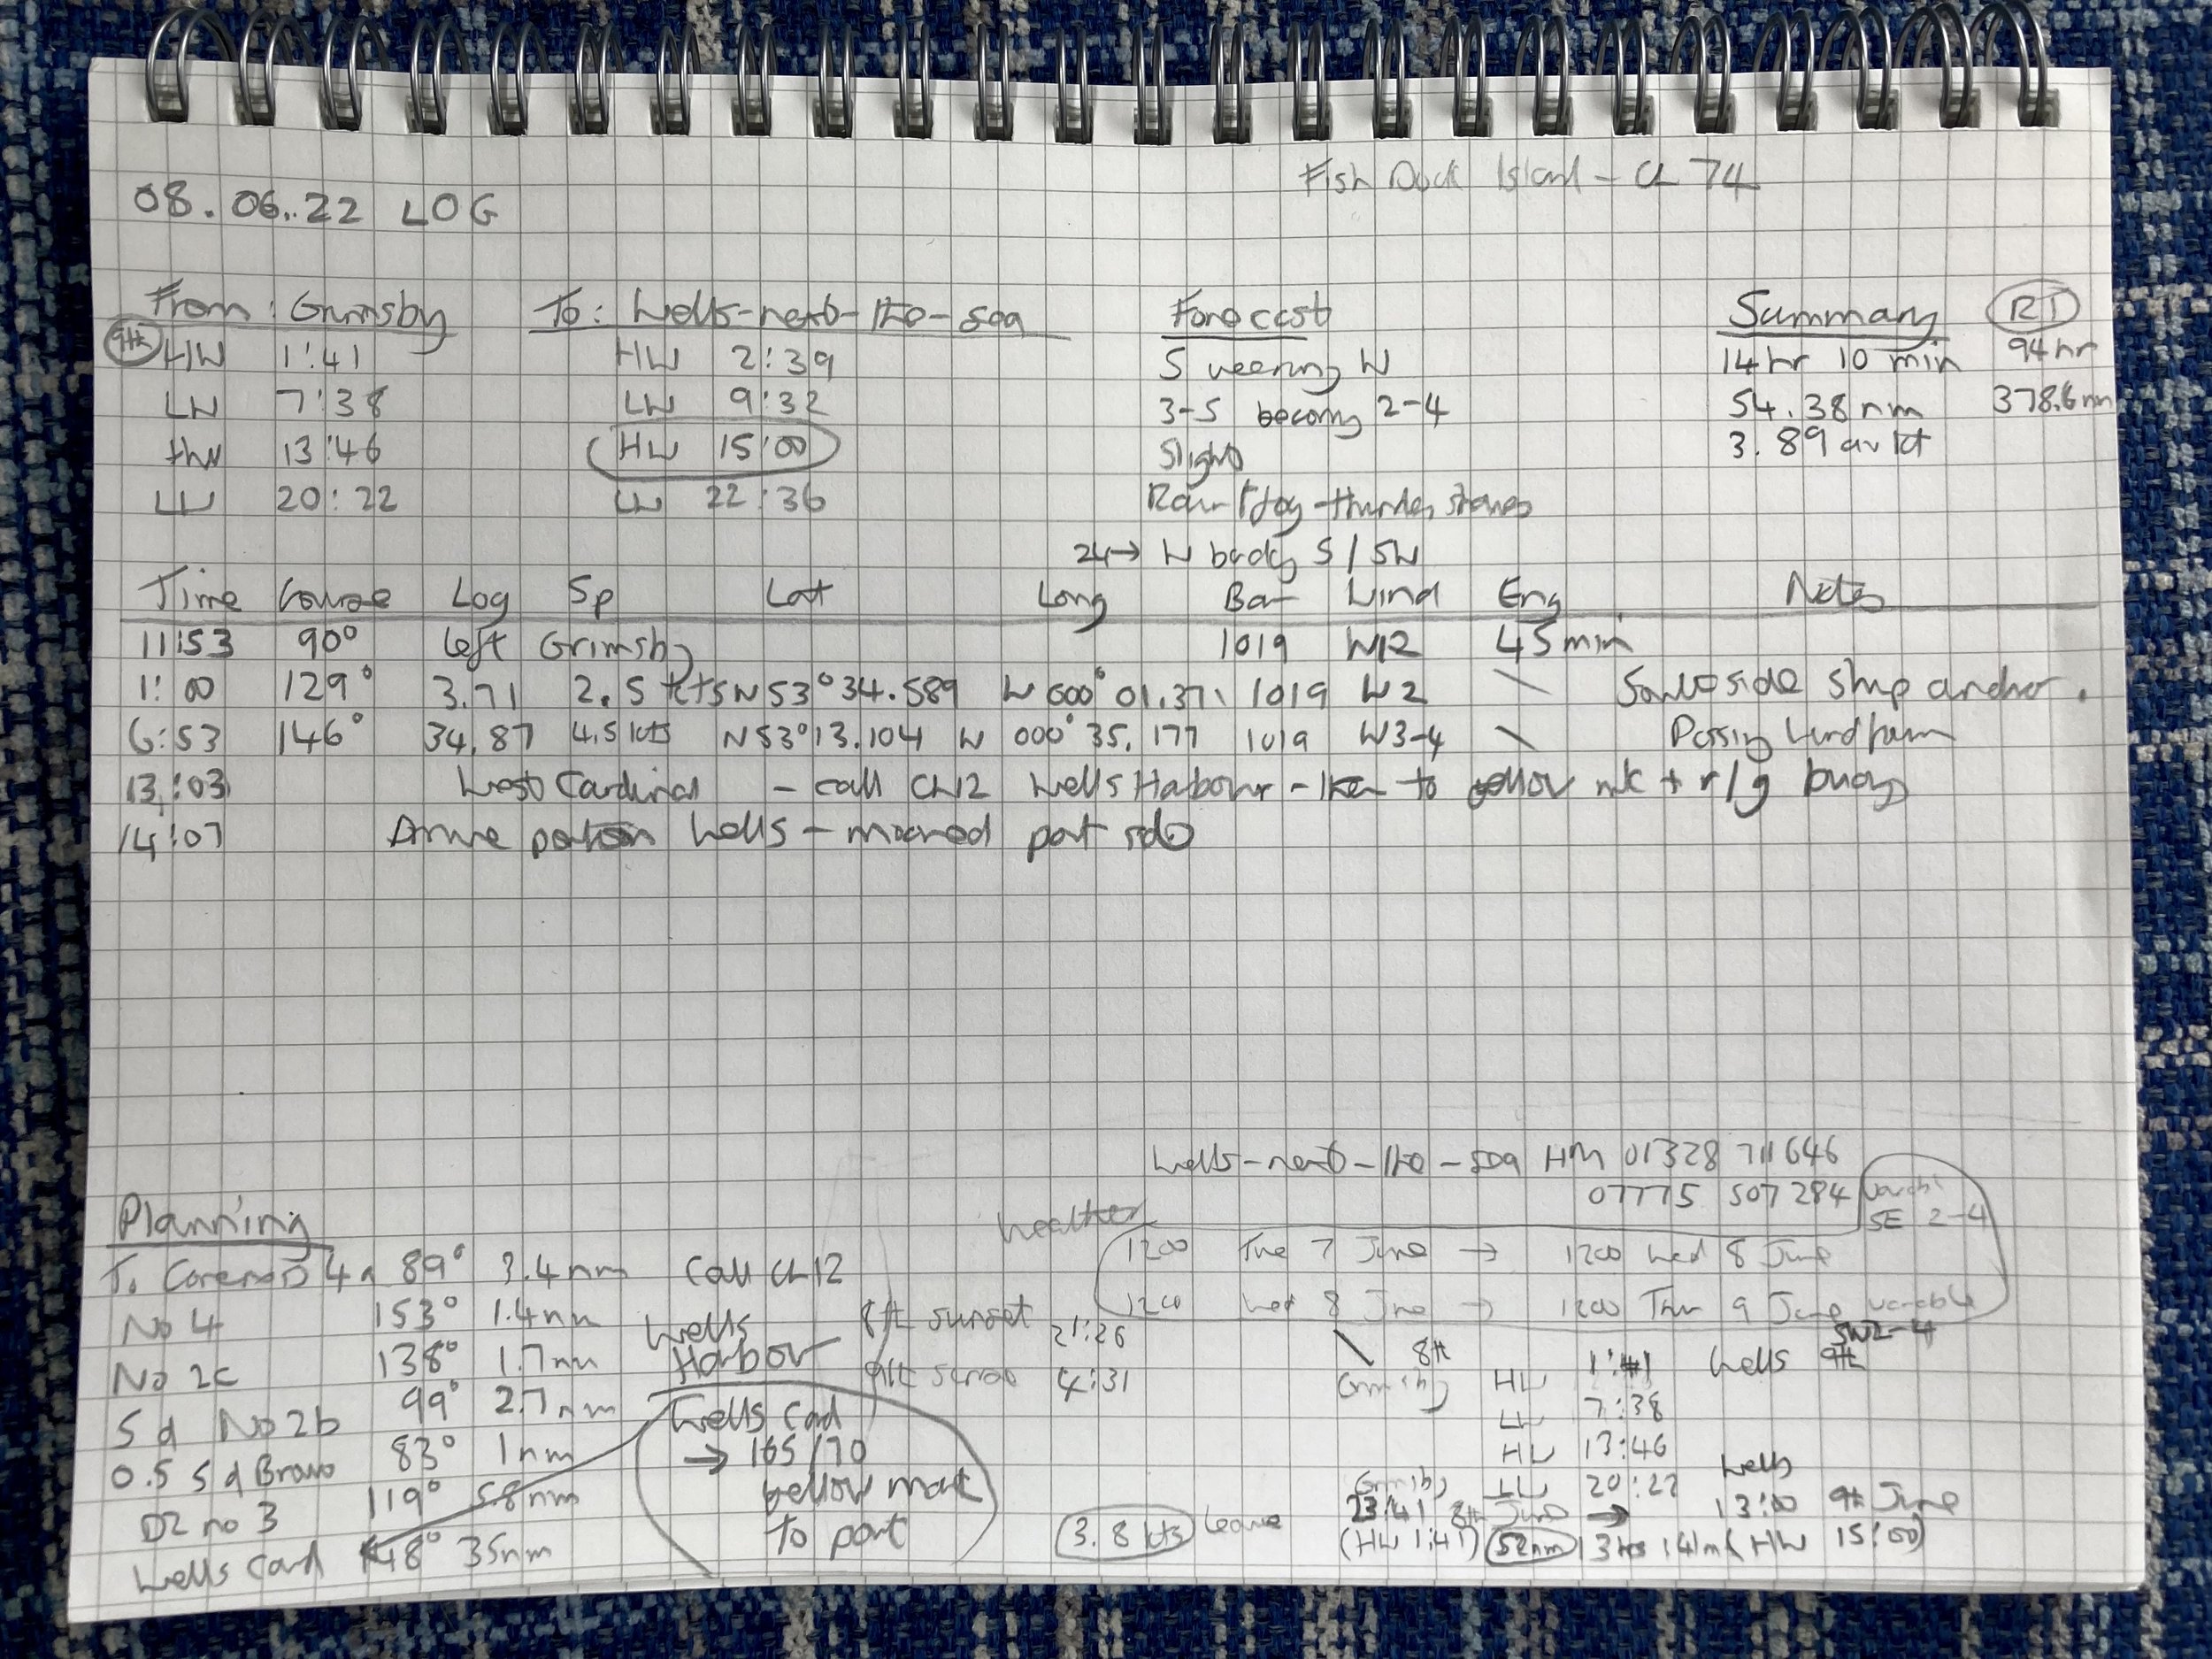 Fish Dock Island - CH 74
08.06.22 LOG
From: Grimsby To: Wells-next-the-sea Forecast Summary RT
9th HW 1:41 HW 2:39 S veering W 14 hr 10 min 94 hr
LW 7:38 LW 9:32 3-5 becomg 2-4 54.38 nm 378.6nm
HW 13:46 HW 15:00 Slight 3.89 av kt
LW 20:22 LW 22:36 Rain fog - thunder
24→ W backg S/SW
Time Course Log Sp Lat Long Bar Wind Eng Notes
11:53 90° Left Grimsby 1019 W12 45 min
1:00 129° 3.71 2.5 kts N 53° 34.589 W 000° 01.371 1019 W2 \ South side ship anchor.
6:53 146° 34.87 4.5 kts N53°13.104 W 000° 35.177 1019 W3-4 \ Passing Windfarm
13:03 West Cardinal - call CH12 Wells Harbour - then to yellow mk + r/g buoys
14:07 Arrive Wells - moored port side
Wells-next-the-sea HM 01328 711646
07775 507284
Planning
Weather
SE 2-4
1200 Tue 7 June → 1200 Wed 8 June
1200 Wed 8 June → 1200 Thu 9 June variable
SW2-4
To 4a 89° 3.4nm Call CH12
No 4 153° 1.4nm
No 2c 138° 1.7nm
S of No 2b 99° 2.7nm
0.5 S of Bravo 83° 1nm
DZ no 3 119° 5.8nm
Wells Card 148° 35nm
Wells Harbour
8th sunset 21:26
9th sunrise 4:31
Wells Card
→ 165/70
yellow mark
to port
8th
Grimsby HW 1:41 Wells 9th
LW 7:38
HW 13:46
LW 20:22
3.8 kts Leave Grimsby 23:41 8th June → Wells 13:00 9th June
(HW 1:41) 52nm 13 hrs 41m (HW 15:00)